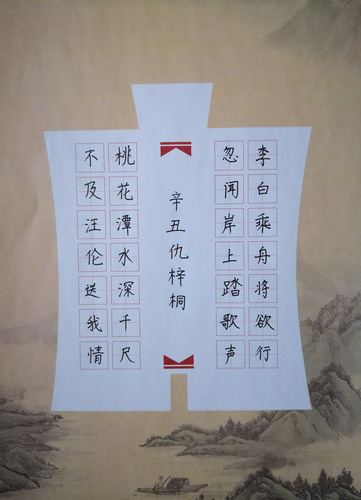 李白乘舟将欲行
忽闻岸上踏歌声
辛丑仇梓桐
桃花潭水深千尺
不及汪伦送我情